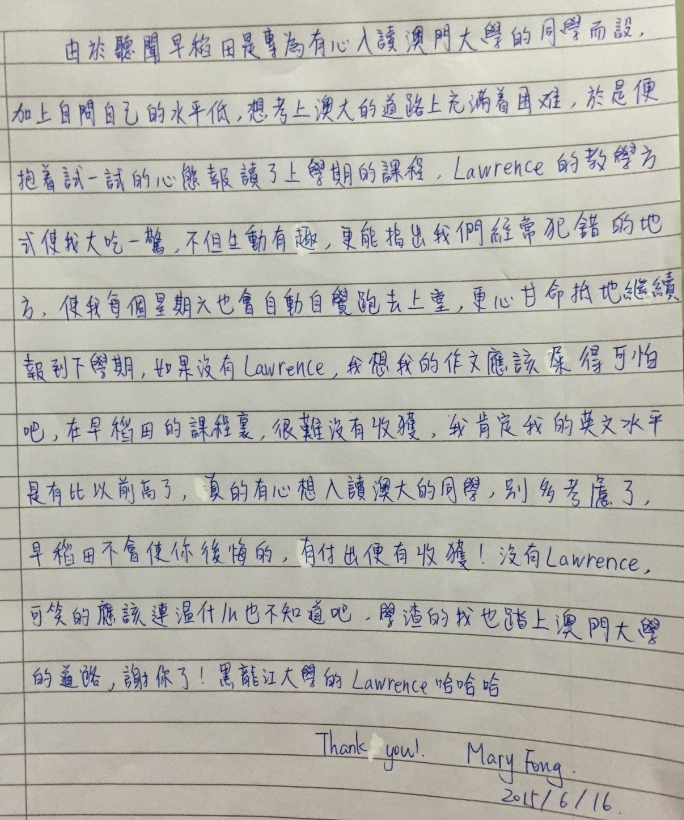 由於聽聞早稻田是專為有心入讀澳門大學的同學而設，
加上自問自己的水平低，想考上澳大的道路上充滿着困难，於是便
抱着試一試的心態報讀了上學期的課程，Lawrence 的教學方
式使我大吃一驚，不但生動有趣，更能指出我們經常犯錯的地
方，使我每個星期六也會自動自覺跑去上堂，更心甘命抵地繼續
報到下學期，如果沒有Lawrence，我想我的作文應該屎得可怕
吧，在早稻田的課程裏，很難沒有收獲，我肯定我的英文水平
是有比以前高了，真的有心想入讀澳大的同學，别多考慮了，
早稻田不會使你後悔的，有付出便有收獲！沒有Lawrence，
可笑的應該連温什么也不知道吧，學渣的我也踏上澳門大學
的道路，謝你了！黑龍江大學的Lawrence哈哈哈
Thank you! Mary Fong.
2015/6/16